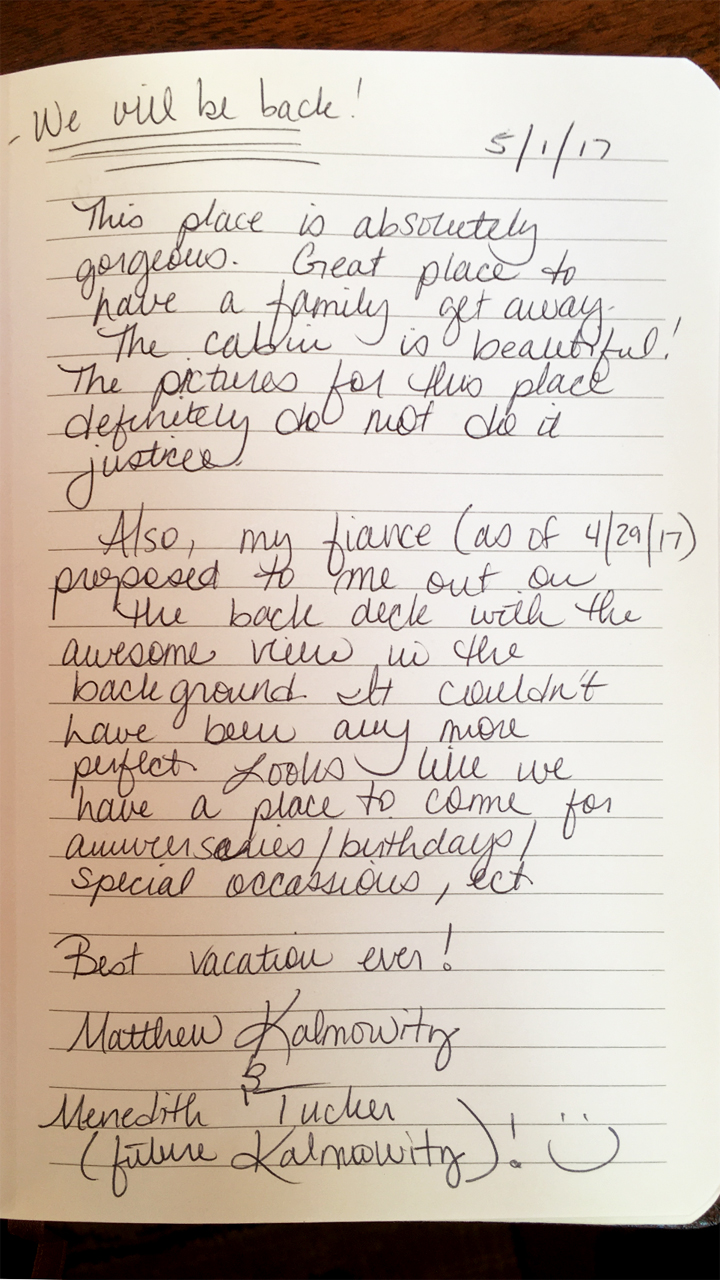 - We will be back!
5/1/17
This place is absolutely
gorgeous. Great place to
have a family get away.
The cabin is beautiful!
The pictures for this place
definitely do not do it
justice.
Also, my fiance (as of 4/29/17)
proposed to me out on
the back deck with the
awesome view in the
background. It couldn't
have been any more
perfect. Looks like we
have a place to come for
anniversaries/birthdays/
special occassions, ect.
Best vacation ever!
Matthew Kalmowitz
&
Meredith Tucker
(future Kalmowitz)! :)